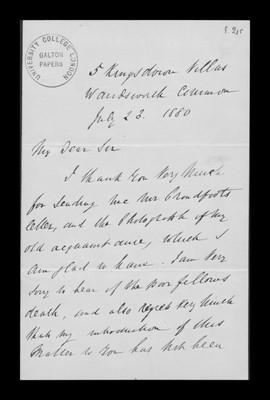 f. 2r
UNIVERSITY COLLEGE LONDON
GALTON
PAPERS
5 Kingsdown Villas
Wandsworth Common
July 23. 1880
My Dear Sir
I thank you very much
for sending me Mr Croudfoots
letter, and the Photograph of my
old acquaintance, which I
am glad to have. I am very
sorry to hear of the poor fellows
death, and also regret very much
that my introduction of this
matter to you has not been